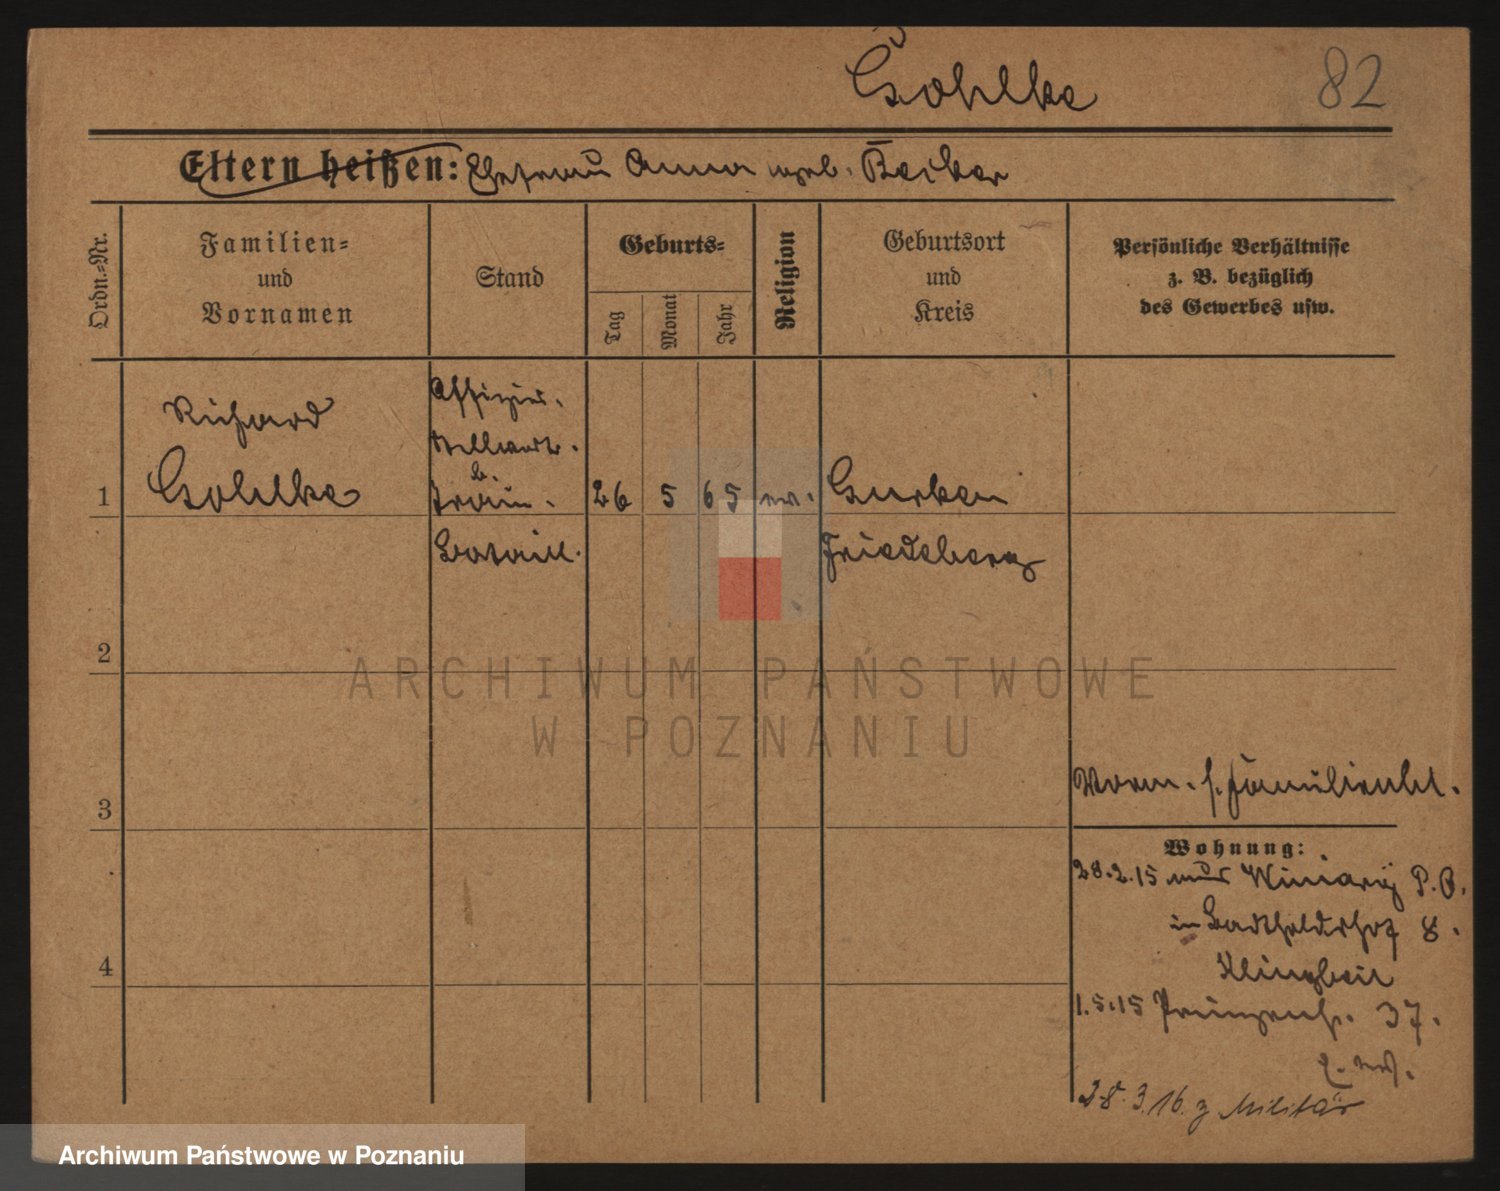 Gohlke
82
Eltern heißen: Ehefrau Anna geb. Becker
Ordn.-Nr.
Familien-
und
Vornamen
Stand
Geburts-
Tag
Monat
Jahr
Religion
Geburtsort
und
Kreis
Persönliche Verhältnisse
z. B. bezüglich
des Gewerbes usw.
Richard
Offizier-
Stellvertr.
1
Gohlke
b.
Train-
26 5 65 ev.
Gurken
Bataill.
Friedeberg
2
3
4
Worm. s. Familienbl.
Wohnung:
28.2.15 aus Winiary P. O.
in Bartholdshof 8.
Klingbeil
1.5.15 Prinzenstr. 37.
28.3.16. z Militär
ARCHIWUM PAŃSTWOWE
W POZNANIU
Archiwum Państwowe w Poznaniu